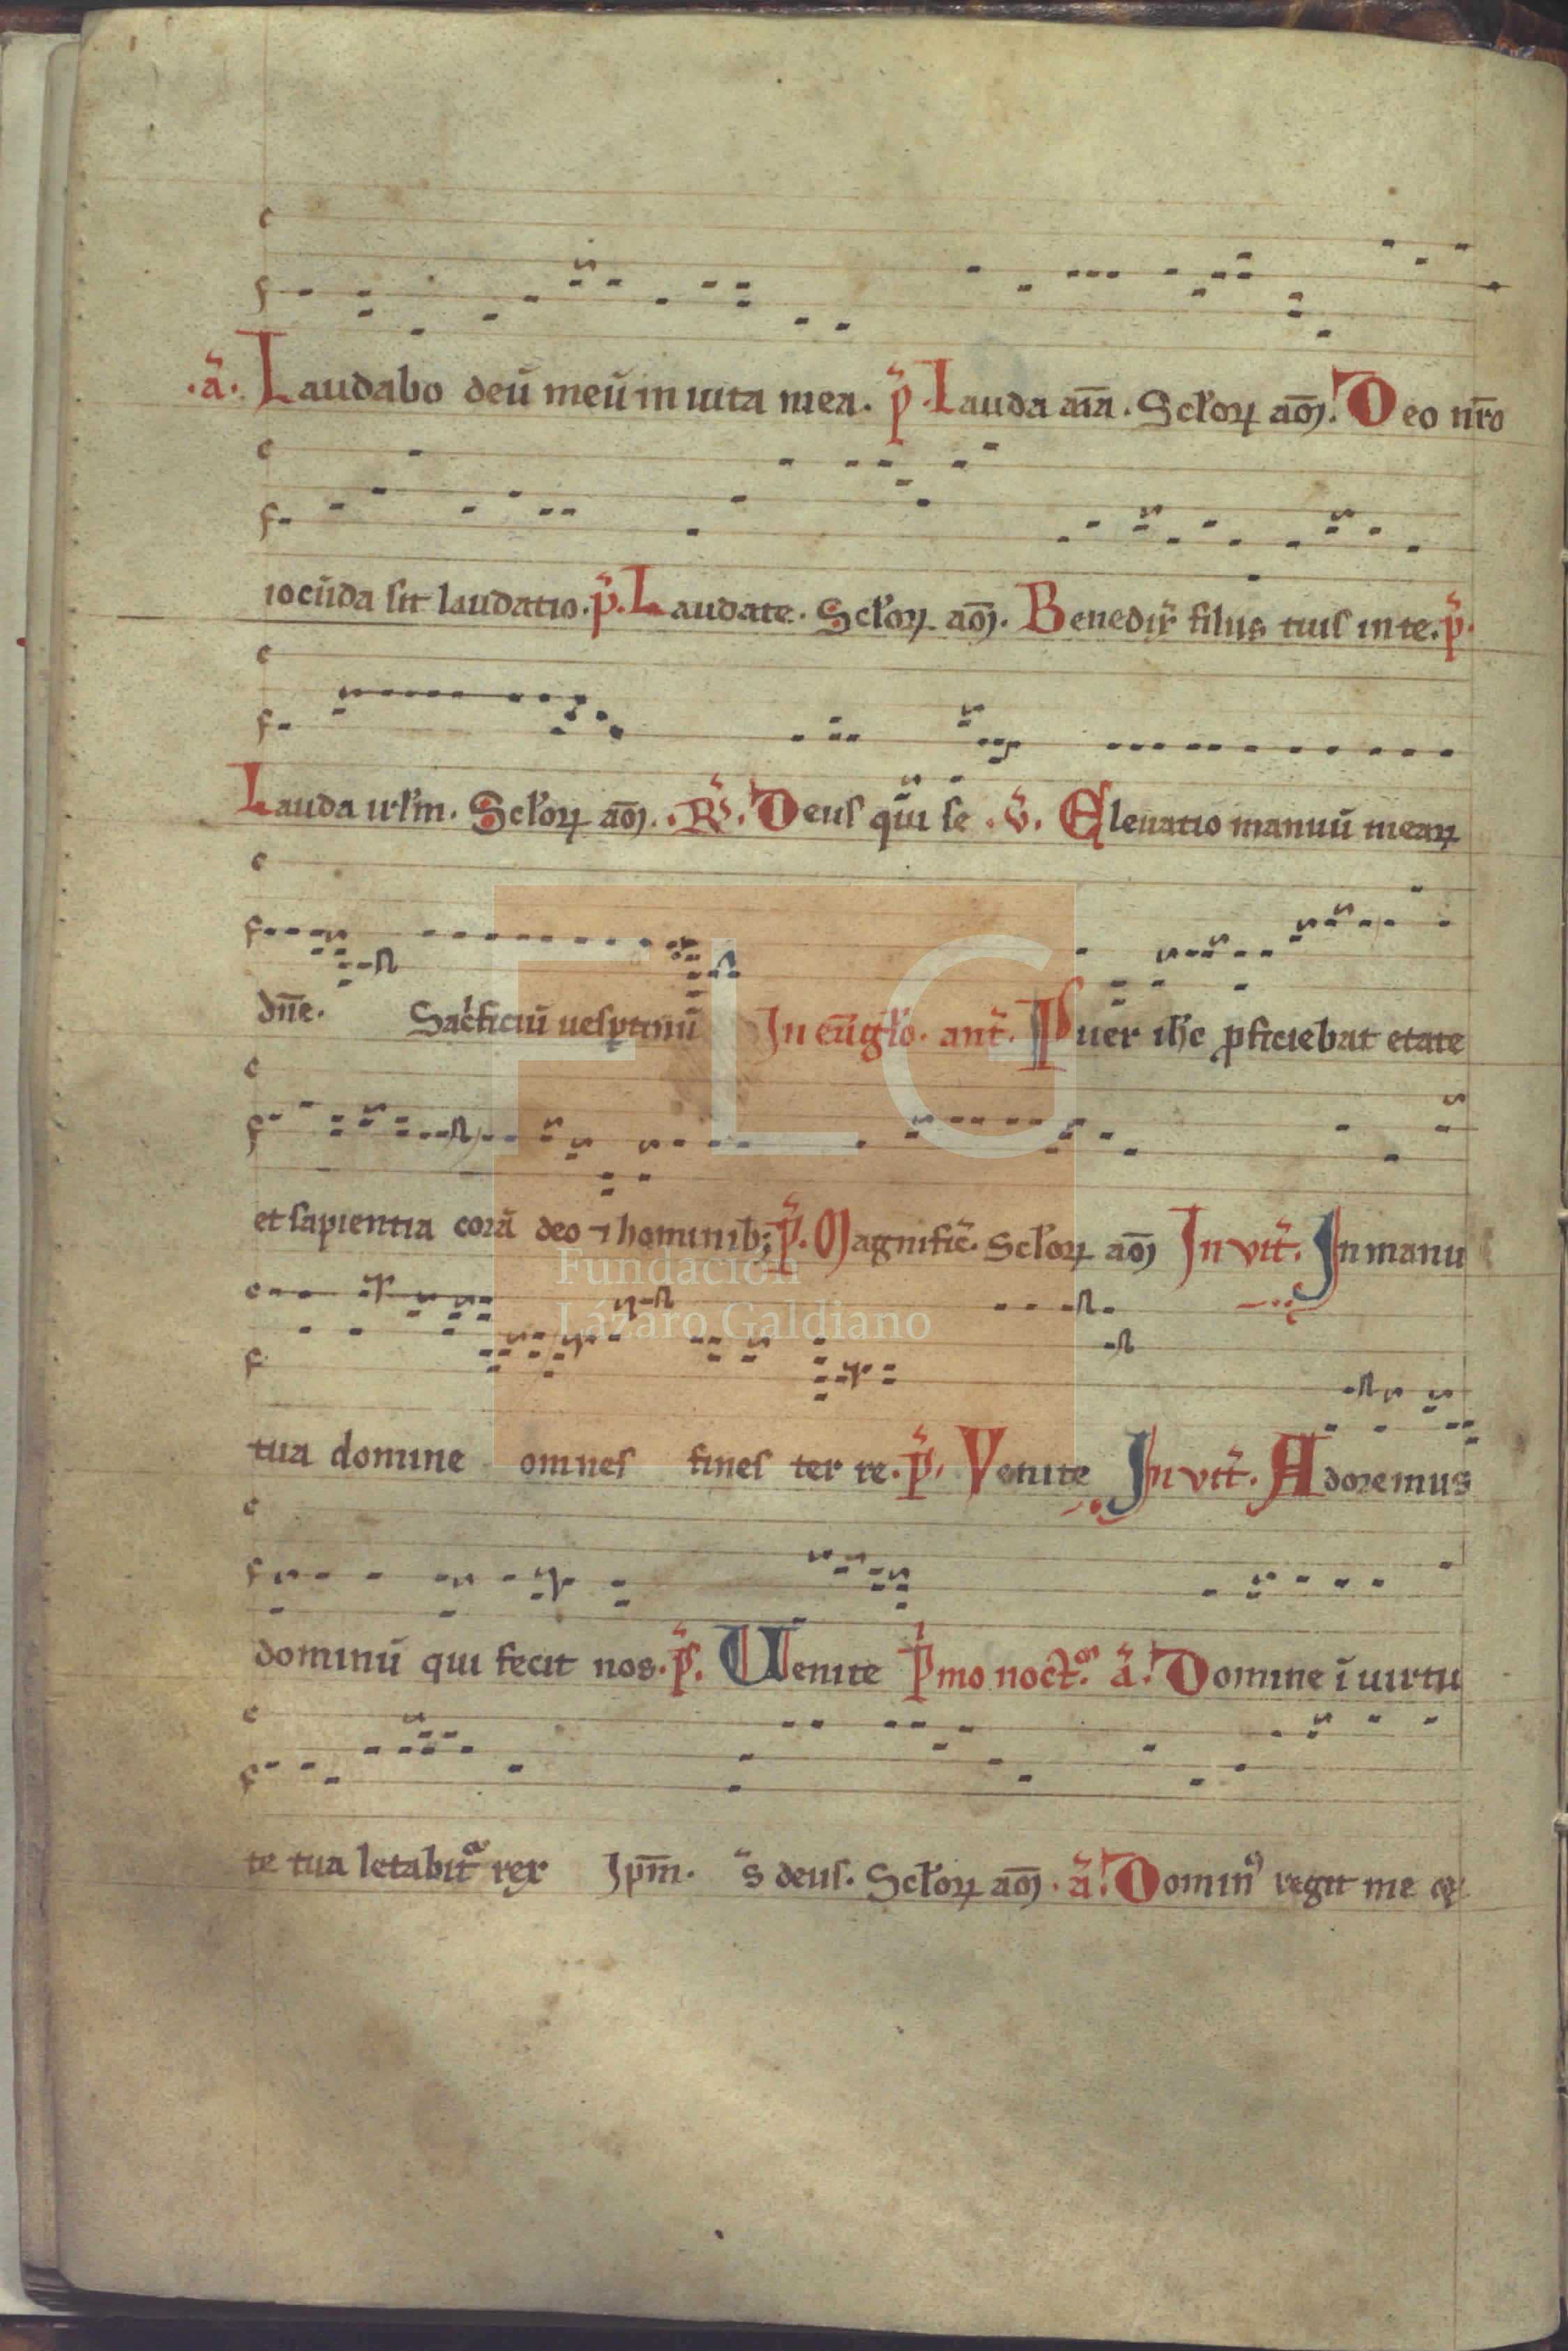 .a͂. Laudabo deū meū in uita mea. p͂. Lauda aīa. Scłoꝝ am̄. Deo nr̄o
iocūda sit laudatio. p͂. Laudate. Scłoꝝ am̄. Benedix͂ filiis tuis in te. p͂.
Lauda irłm. Scłoꝝ am̄. .R͂. Deus qui se .v͂. Eleuatio manuū mearꝝ
dn̄e. Sac̍ficiū uesꝑtinū In eūgło. ant͂. Puer ih̄c ꝓficiebat etate
et sapientia corā deo ⁊ hominib; p͂. Magnific̄. Scłoꝝ am̄ Invit͂. In manu
tua domine omnes fines ter re. p͂. Venite Invit͂. Adoremus
dominū qui fecit nos. p͂. Uenite Pͥmo noct. a͂. Domine ī uirtu
te tua letabit᷑ rex Ip̄m. s͂ deus. Scłoꝝ am̄. a͂. Dominꝰ regit me
Fundación
Lázaro Galdiano
FLG